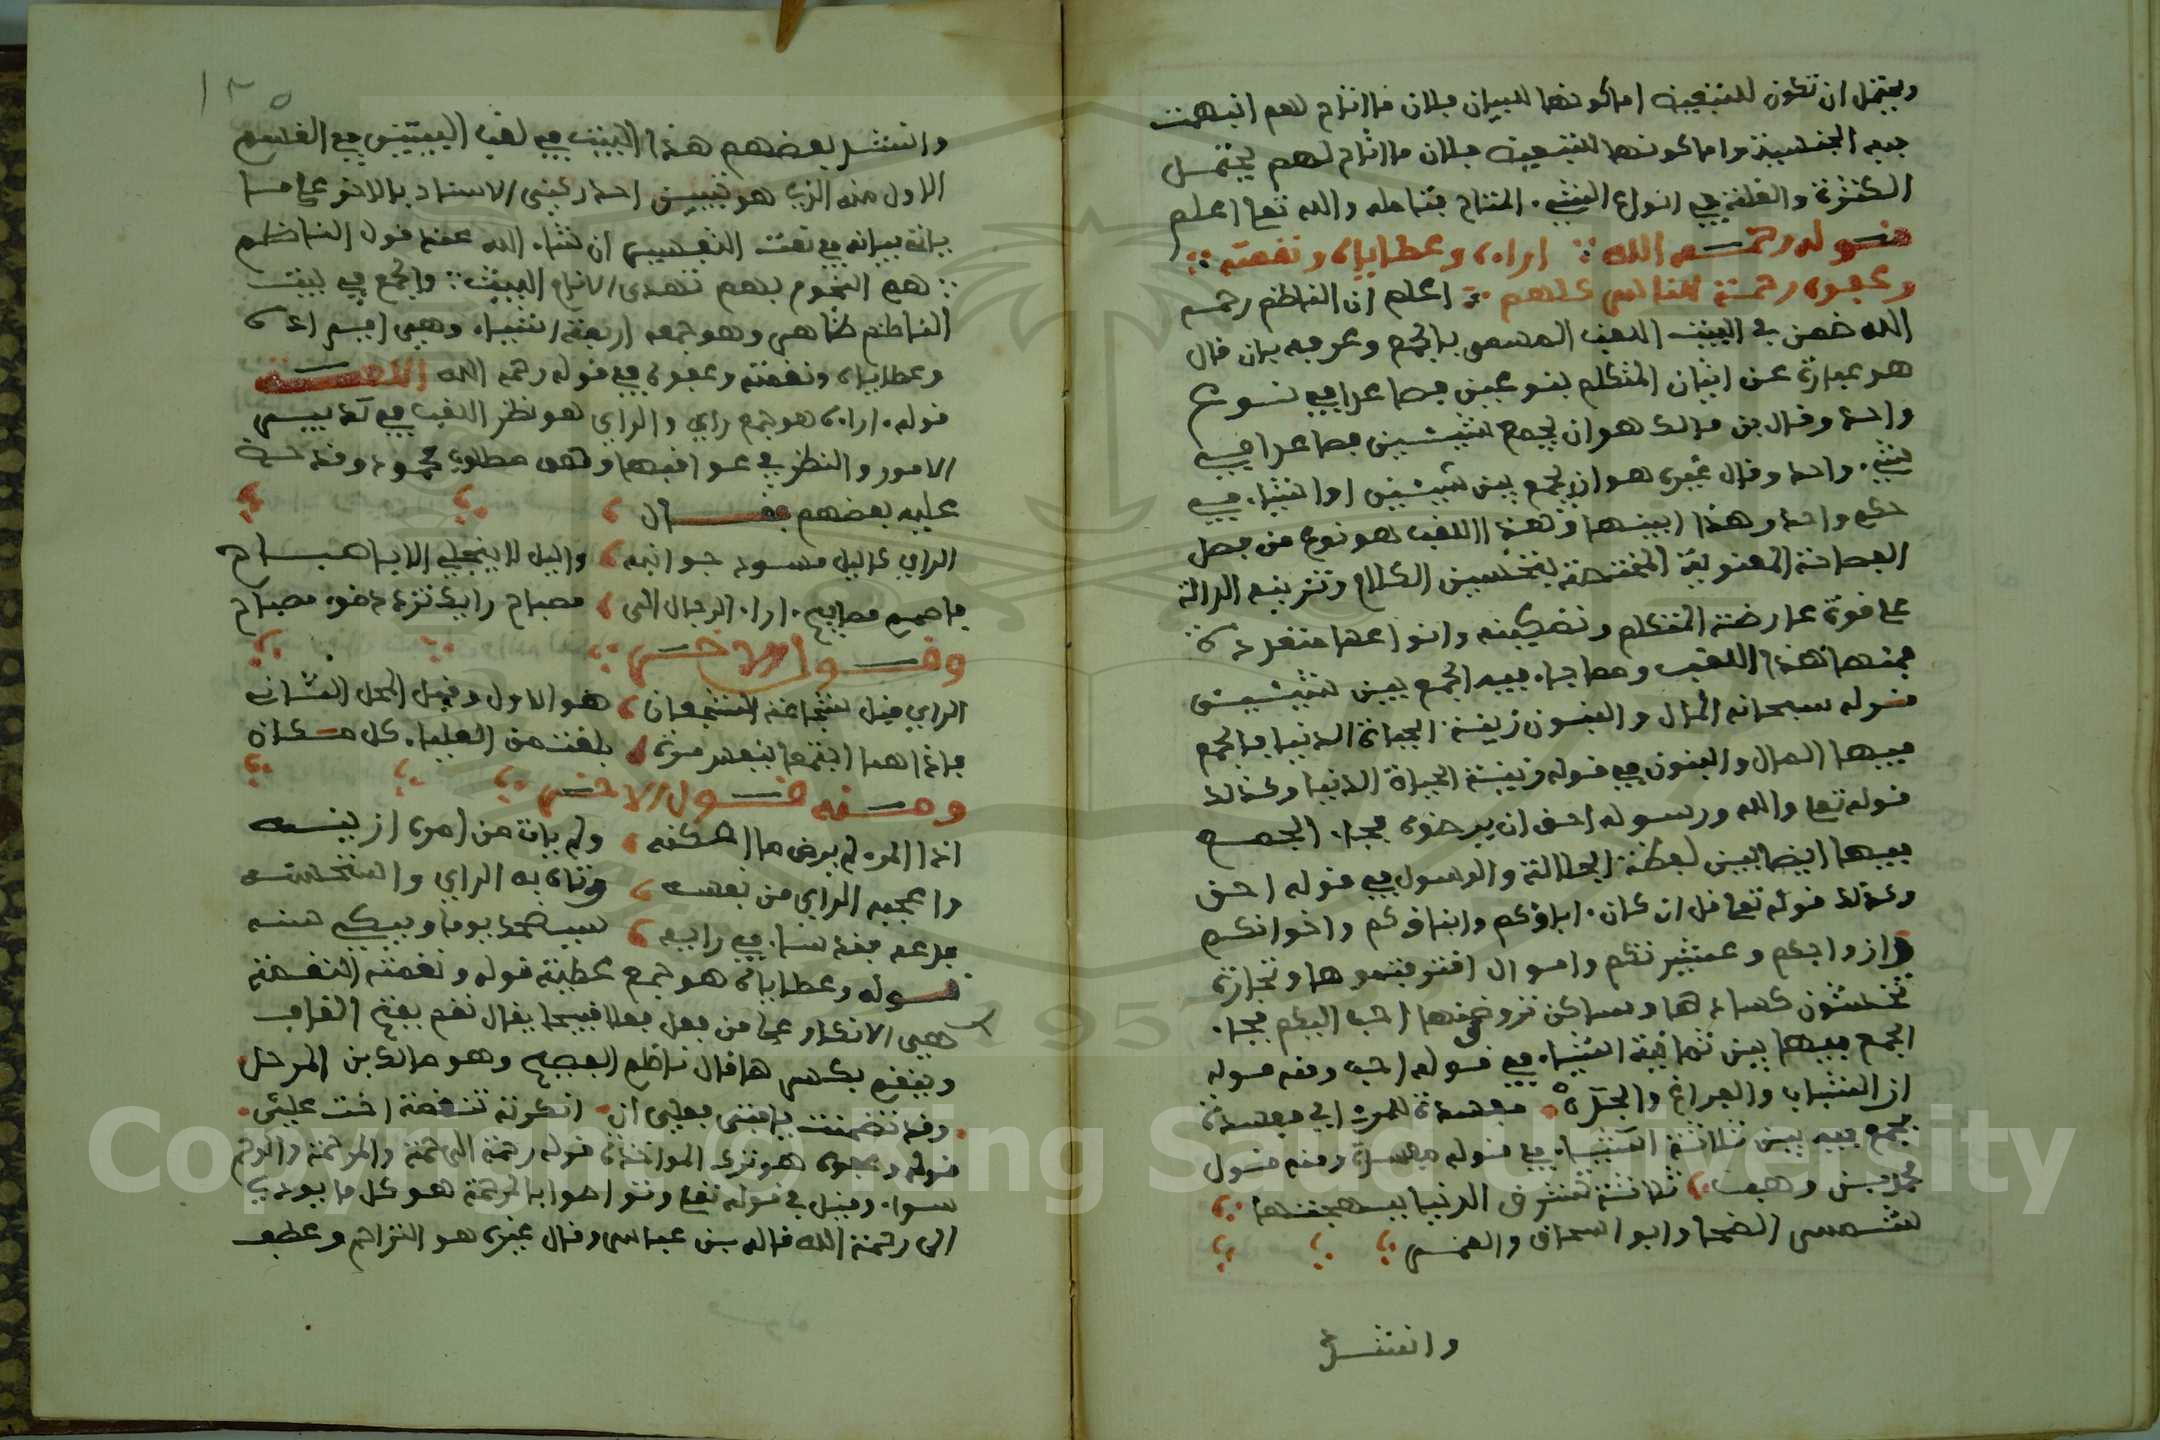 ويحتمل ان تكون للتبعيض اما كونها للبيان فلان ما اتاح لهم انبهمت
فيه الجنسية واما كونها للتبعيض فلان ما اتاح لهم يحتمل
الكثرة والقلة في انواع الشيء المتاح فتامله والله تعا اعلم
قوله رحمه الله اراءه وعطاياه ونقمته
وعفوه رحمة للناس كلهم اعلم ان الناظم رحمه
الله ضمن في البيت اللقب المسمى بالجمع وعرفه بان قال
هو عبارة عن اتيان المتكلم بنوعين فصاعدا في نوع
واحد وقال بن مالك هو ان يجمع شيئين فصاعدا في
شيء واحد وقال غيره هو ان يجمع بين شيئين او اشياء في
حكم واحد وهذا ابينها وهذا اللقب هو نوع من فصل
الفصاحة المعنوية المختصة بتحسين الكلام وتزيينه الدالة
على قوة عارضة المتكلم وتمكينه وانواعها متعددة
فمنها هذا اللقب ومما جاء فيه الجمع بين شيئين
قوله سبحانه المال والبنون زينة الحياة الدنيا فالجمع
فيها المال والبنون في قوله زينة الحياة الدنيا وكذلك
قوله تعا والله ورسوله احق ان يرضوه فجاء الجمع
فيها ايضا بين لفظة الجلالة والرسول في قوله احق
وكذلك قوله تعا قل ان كان اباؤكم وابناؤكم واخوانكم
وازواجكم وعشيرتكم واموال اقترفتموها وتجارة
تخشون كسادها ومساكن ترضونها احب اليكم فجاء
الجمع فيها بين ثمانية اشياء في قوله احب ومنه قوله
ان الشباب والفراغ والجدة مفسدة للمرء اي مفسدة
فجمع فيه بين ثلاثة اشياء في قوله مفسدة ومنه قول
محمد بن وهيب ثلاثة تشرق الدنيا ببهجتها
شمس الضحا وابو اسحاق والقمر
وانشد
١٣٥
وانشد بعضهم هذا البيت في لقب البيتين في القسم
الاول منه الذي هو تبيين احد ركني الاسناد بالاخر على ما
يات بيانه في نعت التقسيم ان شاء الله عند قول الناظم
هم النجوم بهم تهدى الانام البيت والجمع في بيت
الناظم ظاهر وهو جمعه اربعة اشياء وهي اراءه
وعطاياه ونقمته وعفوه في قوله رحمه الله
قوله اراءه هو جمع راي والراي هو نظر القلب في تدبير
الامور والنظر في عواقبها وهو مطلوب محمود وقد حث
عليه بعضهم فقال
الراي كاليل مسود جوانبه واليل لا ينجلي الا باصباح
فاضمم مصابيح اراء الرجال الى مصباح رايك تزدد ضوء مصباح
وقول الاخر
الراي قبل شجاعة الشجعان هو الاول وهي المحل الثاني
فاذا هما اجتمعا لنفس مرة بلغت من العلياء كل مكان
ومنه قول الاخر
اذا المرء لم يرض ما امكنه ولم يات من امره ازينه
واعجبه الراي من نفسه وتاه به الراي واستحسنه
فدعه فقد ساء في رايه سيضحك يوما ويبكي سنه
قوله وعطاياه هو جمع عطية قوله ونقمته النقمة
هي الانكار على من فعل فعلا قبيحا يقال نقم بفتح القاف
وينقم بكسرها قال ناظم الفصيح وهو مالك بن المرحل
وقد نقمت يا فتى فعلي ان انكرته تنقمه انت علي
قوله وعفوه هو ترك المؤاخذة قوله رحمة الرحمة والمرحمة والرحم
سواء وقيل في قوله تعا وتواصوا بالمرحمة هو كل ما يودي
الى رحمة الله قاله بن عباس وقال غيره هو التراحم وعطف